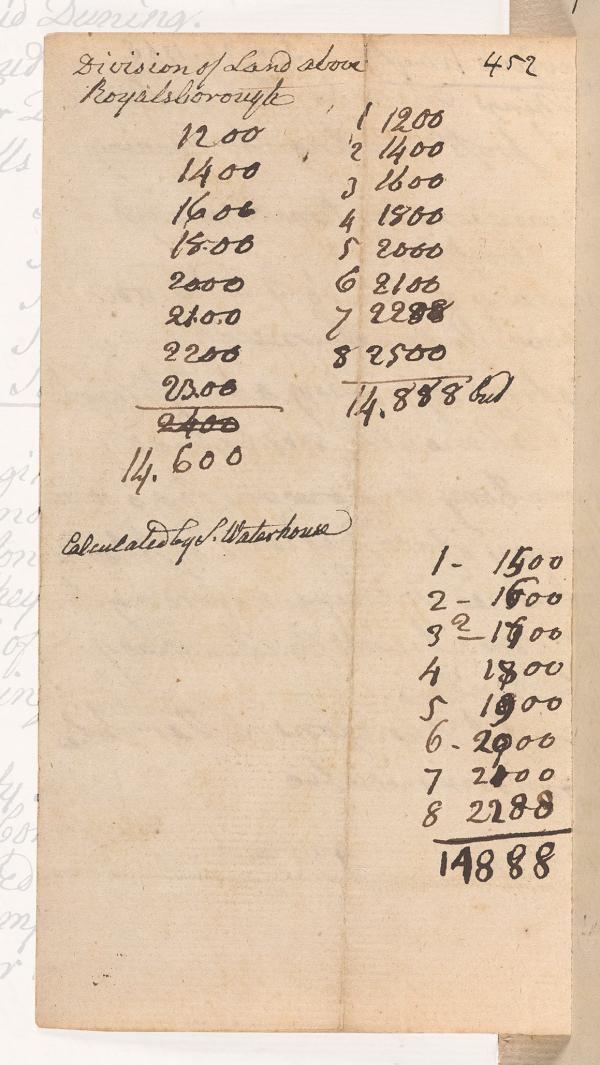 452
Division of Land above
Royalsborough
1200
1400
1600
1800
2000
2100
2200
2300
2400
14.600
1 1200
2 1400
3 1600
4 1800
5 2000
6 2100
7 2288
8 2500
14.888
Calculated by S. Waterhouse
1 - 1500
2 - 1600
3 - 1700
4 1800
5 1900
6 - 2000
7 2100
8 2288
14888